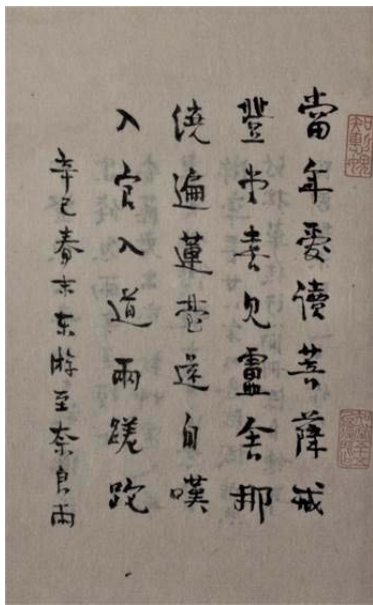 當年愛讀菩薩戒
登堂喜見盧舍那
繞遍蓮臺還自嘆
入官入道兩蹉跎
辛巳春末东游至奈良